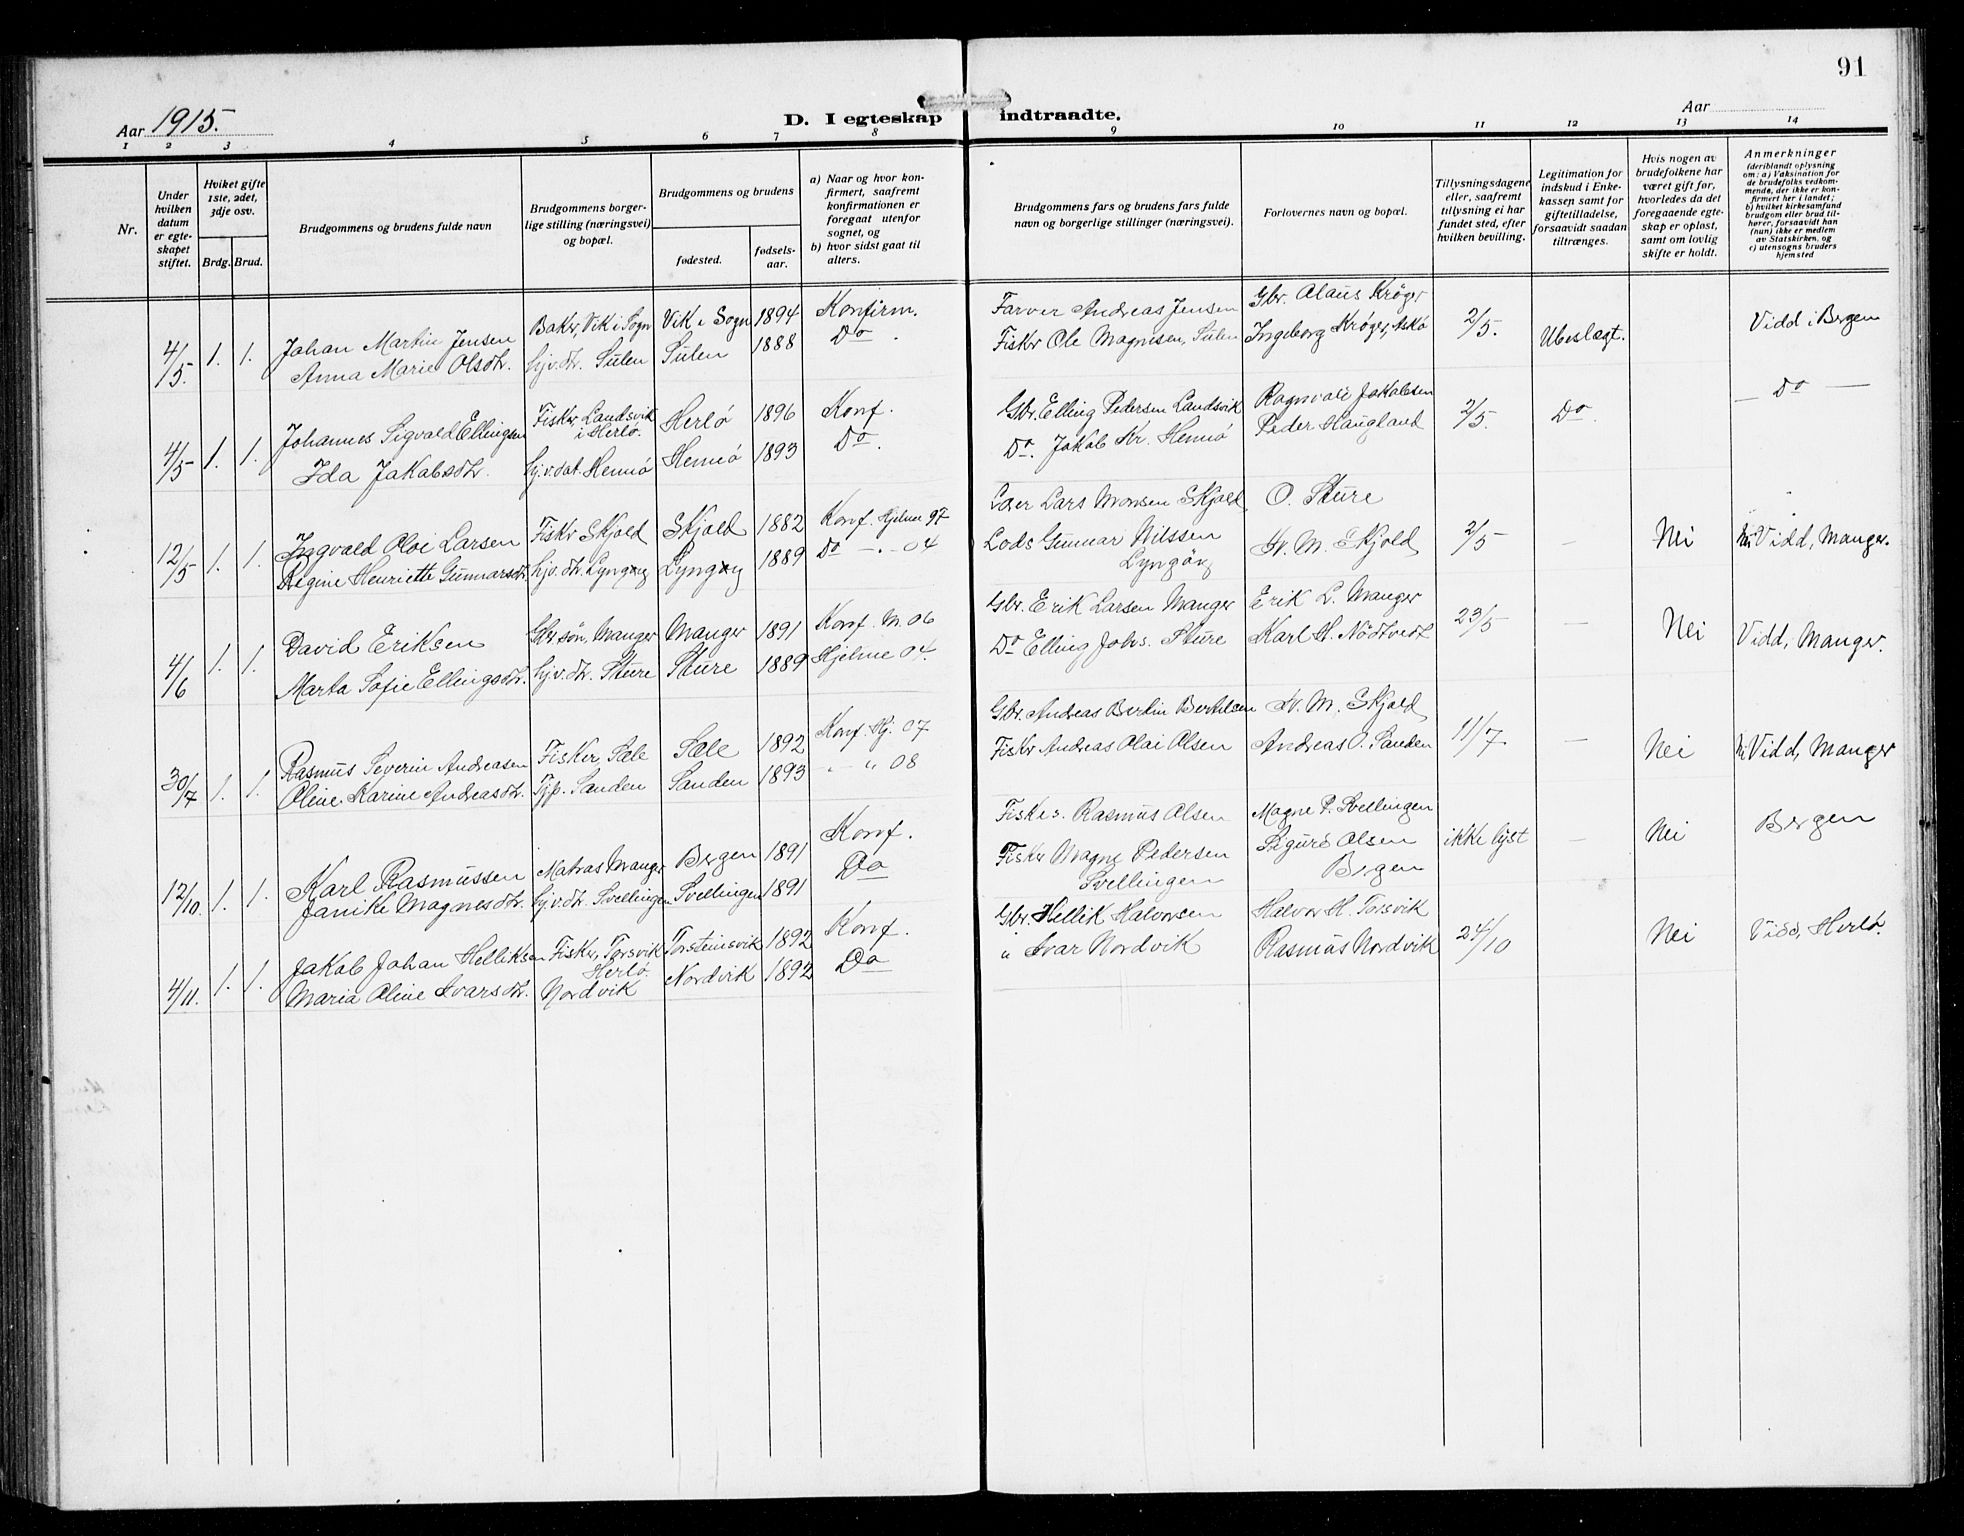 91
Aar 1915.
D. I egteskap indtraadte.
Aar
1 2 3 4 5 6 7 8 9 10 11 12 13 14
Nr.
Under hvilken datum er egteskapet stiftet.
Hviket gifte 1ste, 2det, 3dje osv.
Brdg. Brud.
Brudgommens og brudens fulde navn
Brudgommens borgerlige stilling (næringsvei) og bopæl.
Brudgommens og brudens
fødested.
fødselsaar.
a) Naar og hvor konfirmert, saafremt konfirmationen er foregaat utenfor sognet, og
b) hvor sidst gaat til alters.
Brudgommens fars og brudens fars fulde navn og borgerlige stillinger (næringsvei).
Forlovernes navn og bopæl.
Tillysningsdagene eller, saafremt tillysning ei har fundet sted, efter hvilken bevilling.
Legitimation for indskud i Enkekassen samt for giftetilladelse, forsaavidt saadan tiltrænges.
Hvis nogen av brudefolkene har været gift før, hvorledes da det foregaaende egteskap er opløst, samt om lovlig skifte er holdt.
Anmerkninger (deriblandt oplysning om: a) Vaksination for de brudefolks vedkommende, der ikke er konfirmert her i landet; b) hvilket kirkesamfund brudgom eller brud tilhører, forsaavidt han (hun) ikke er medlem av Statskirken, og c) utensogns bruders hjemsted
4/5 1. 1. Johan Martin Jensen Baker, Vik i Sogn Vik i Sogn 1894 Konfirm. Farver Andreas Jensen Gbr. Claus Krøger 2/5. Ubeslægt. Vidd i Bergen
Anna Marie Olsdtr. hjv. dtr. Sulen Sulen 1888 Do. Fisker Ole Magnesen, Sulen Ingeborg Krøger, Askø
4/5 1. 1. Johannes Sigvald Ellingsen Fisker, Landsvik i Herlø. Herlø 1896 Konf. Gbr. Elling Pedersen Landsvik Ragnvald Jakobsen 2/5. Do. — Do —
Ida Jakobsdtr. hjv. dat. Hennø Hennø 1893 Do. Do. Jakob Kr. Hennø Peder Haugland
12/5 1. 1. Ingvald Olai Larsen Fisker Skjold Skjold 1882 Konf. Hjelme 97 Lars Monsen Skjold O. Sture 2/5 — Nei Vidd, Manger.
Regine Henriette Gunnarsdtr. hjv. dtr. Lyngøy Lyngøy 1889 Do — . — 04 Lods Gunnar Nilssen Lyngöy Iv. M. Skjold
4/6 1. 1. David Eriksen Gbr. søn, Manger Manger 1891 Konf. M. 06 Gbr. Erik Larsen Manger Erik L. Manger 23/5 — Nei Vidd, Manger.
Marta Sofie Ellingsdtr. hjv. dtr. Sture Sture 1889 Hjelme 04. Do Elling Johs. Sture Karl H. Nödtvedt
30/7 1. 1. Rasmus Severin Andreasen Fisker, Sæle Sæle 1892 Konf. Hj. 07 Gbr. Andreas Bertin Bertilsen Iv. M. Skjold 11/7 — Nei Vidd, Manger
Oline Karine Andreasdtr. Tjp. Sanden Sanden 1893 — " 08 Fisker Andreas Olai Olsen Andreas O. Sanden
12/10. 1. 1. Karl Rasmussen Matros Manger Bergen 1891 Konf. Fisker. Rasmus Olsen Magne P. Svellingen ikke lyst — Nei Bergen
Janike Magnesdtr. hjv. dtr. Svellingen Svellingen 1891 Do Fisker Magne Pedersen Svellingen Sigurd Olsen Bergen
4/11. 1. 1. Jakob Johan Helliksen Fisker, Torsvik Herlø. Torsteinsvik 1892 Konf. Gbr. Hellik Halvorsen Halvor H. Torsvik 24/10 Nei Vidd, Herlø.
Maria Oline Ivarsdtr. Nordvik Nordvik 1892 Do " Ivar Nordvik Rasmus Nordvik